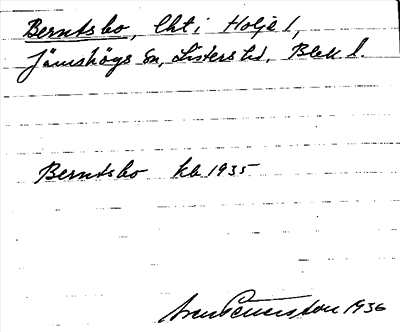 Berntsbo, lht i Holje 1,
Jämshögs sn, Listers hd, Blek l.
Berntsbo kb 1935
1936